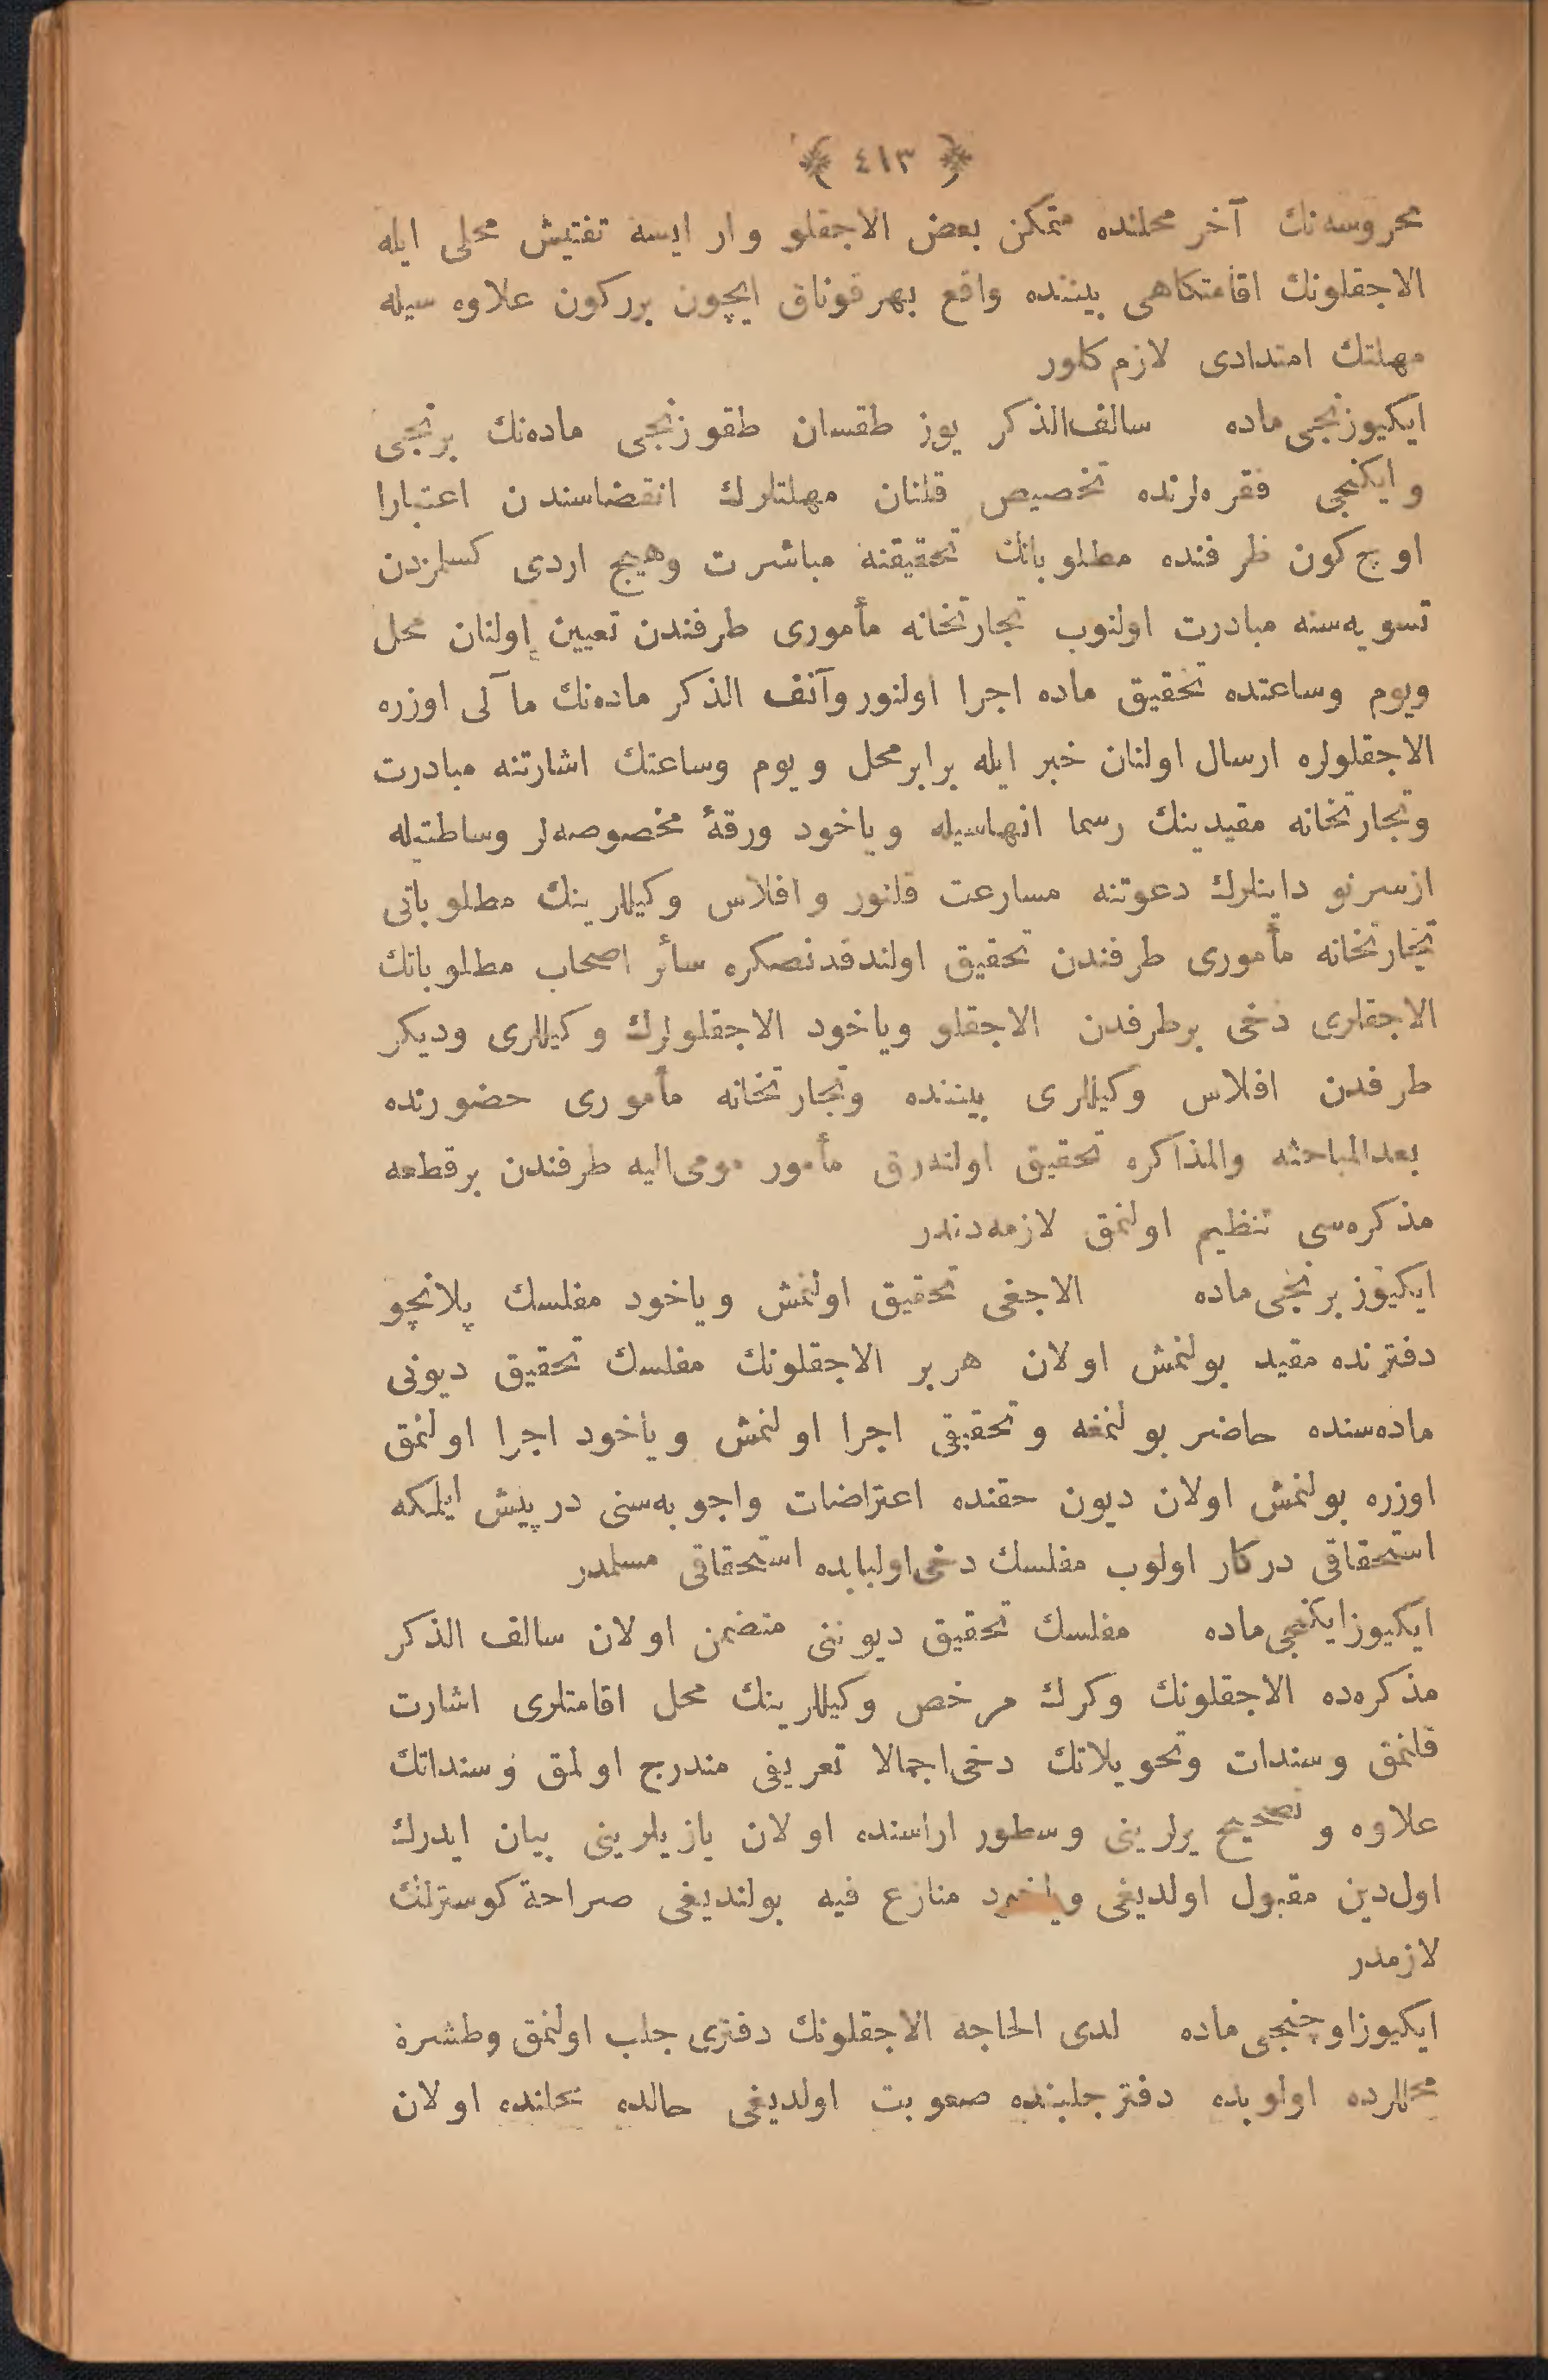 ﴿ ٤١٣ ﴾
محروسه‌نك آخر محلنده متمكن بعض الاجقلو وار ايسه تفتيش محلى ايله
الاجقلونك اقامتكاهى بيننده واقع بهر قوناق ايچون برر كون علاوه سيله
مهلتك امتدادى لازم كلور
ايكيوزنجى ماده سالف‌الذكر يوز طقسان طقوزنجى ماده‌نك برنجى
وايكنجى فقره‌لرنده تخصيص قلنان مهلتلرك انقضاسندن اعتبارا
اوچ كون ظرفنده مطلوباتك تحقيقنه مباشرت وهيچ اردى كسلمزدن
تسويه‌سنه مبادرت اولنوب تجارتخانه مأمورى طرفندن تعيين اولنان محل
ويوم وساعتده تحقيق ماده اجرا اولنور وآنف الذكر ماده‌نك مآلى اوزره
الاجقلولره ارسال اولنان خبر ايله برابر محل ويوم وساعتك اشارتنه مبادرت
وتجارتخانه مقيدينك رسما انهاسيله وياخود ورقۀ مخصوصه‌لر وساطتيله
ازسرنو داينلرك دعوتنه مسارعت قلنور وافلاس وكيللرينك مطلوباتى
تجارتخانه مأمورى طرفندن تحقيق اولندقدنصكره سائر اصحاب مطلوباتك
الاجقلرى دخى برطرفدن الاجقلو وياخود الاجقلولرك وكيللرى وديكر
طرفدن افلاس وكيللرى بيننده وتجارتخانه مأمورى حضورنده
بعدالمباحثه والمذاكره تحقيق اولنه‌رق مأمور مومى‌اليه طرفندن برقطعه
مذكره‌سى تنظيم اولنمق لازمه‌دندر
ايكيوز برنجى ماده الاجغى تحقيق اولنمش وياخود مفلسك پلانچو
دفترنده مقيد بولنمش اولان هر بر الاجقلونك مفلسك تحقيق ديونى
ماده‌سنده حاضر بولنمغه وتحقيقى اجرا اولنمش وياخود اجرا اولنمق
اوزره بولنمش اولان ديون حقنده اعتراضات واجوبه‌سنى درپيش ايلمكه
استحقاقى دركار اولوب مفلسك دخى اولبابده استحقاقى مسلمدر
ايكيوزايكنجى ماده مفلسك تحقيق ديوننى متضمن اولان سالف الذكر
مذكره‌ده الاجقلونك وكرك مرخص وكيللرينك محل اقامتلرى اشارت
قلنمق وسندات وتحويلاتك دخى اجمالا تعريفى مندرج اولمق وسنداتك
علاوه وتصحيح يرلرينى وسطور اراسنده اولان يازيلرينى بيان ايدرك
اول دين مقبول اولديغى وياخود منازع فيه بولنديغى صراحة كوسترلمك
لازمدر
ايكيوزاوچنجى ماده لدى الحاجه الاجقلونك دفترى جلب اولنمق وطشره
محللرده اولوبده دفتر جلبنده صعوبت اولديغى حالده محلنده اولان